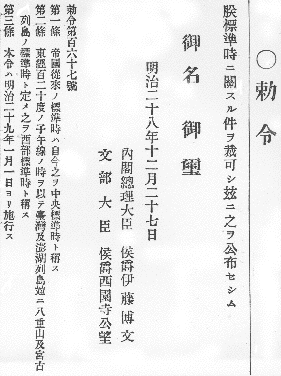 ○勅令
朕標準時ニ關スル件ヲ裁可シ玆ニ之ヲ公布セシム
御名 御璽
明治二十八年十二月二十七日
內閣總理大臣 侯爵伊藤博文
文部大臣 侯爵西園寺公望
勅令第百六十七號
第一條 帝國從來ノ標準時ハ自今之ヲ中央標準時ト稱ス
第二條 東經百二十度ノ子午線ノ時ヲ以テ臺灣及澎湖列島竝ニ八重山及宮古
列島ノ標準時ト定メ之ヲ西部標準時ト稱ス
第三條 本令ハ明治二十九年一月一日ヨリ施行ス